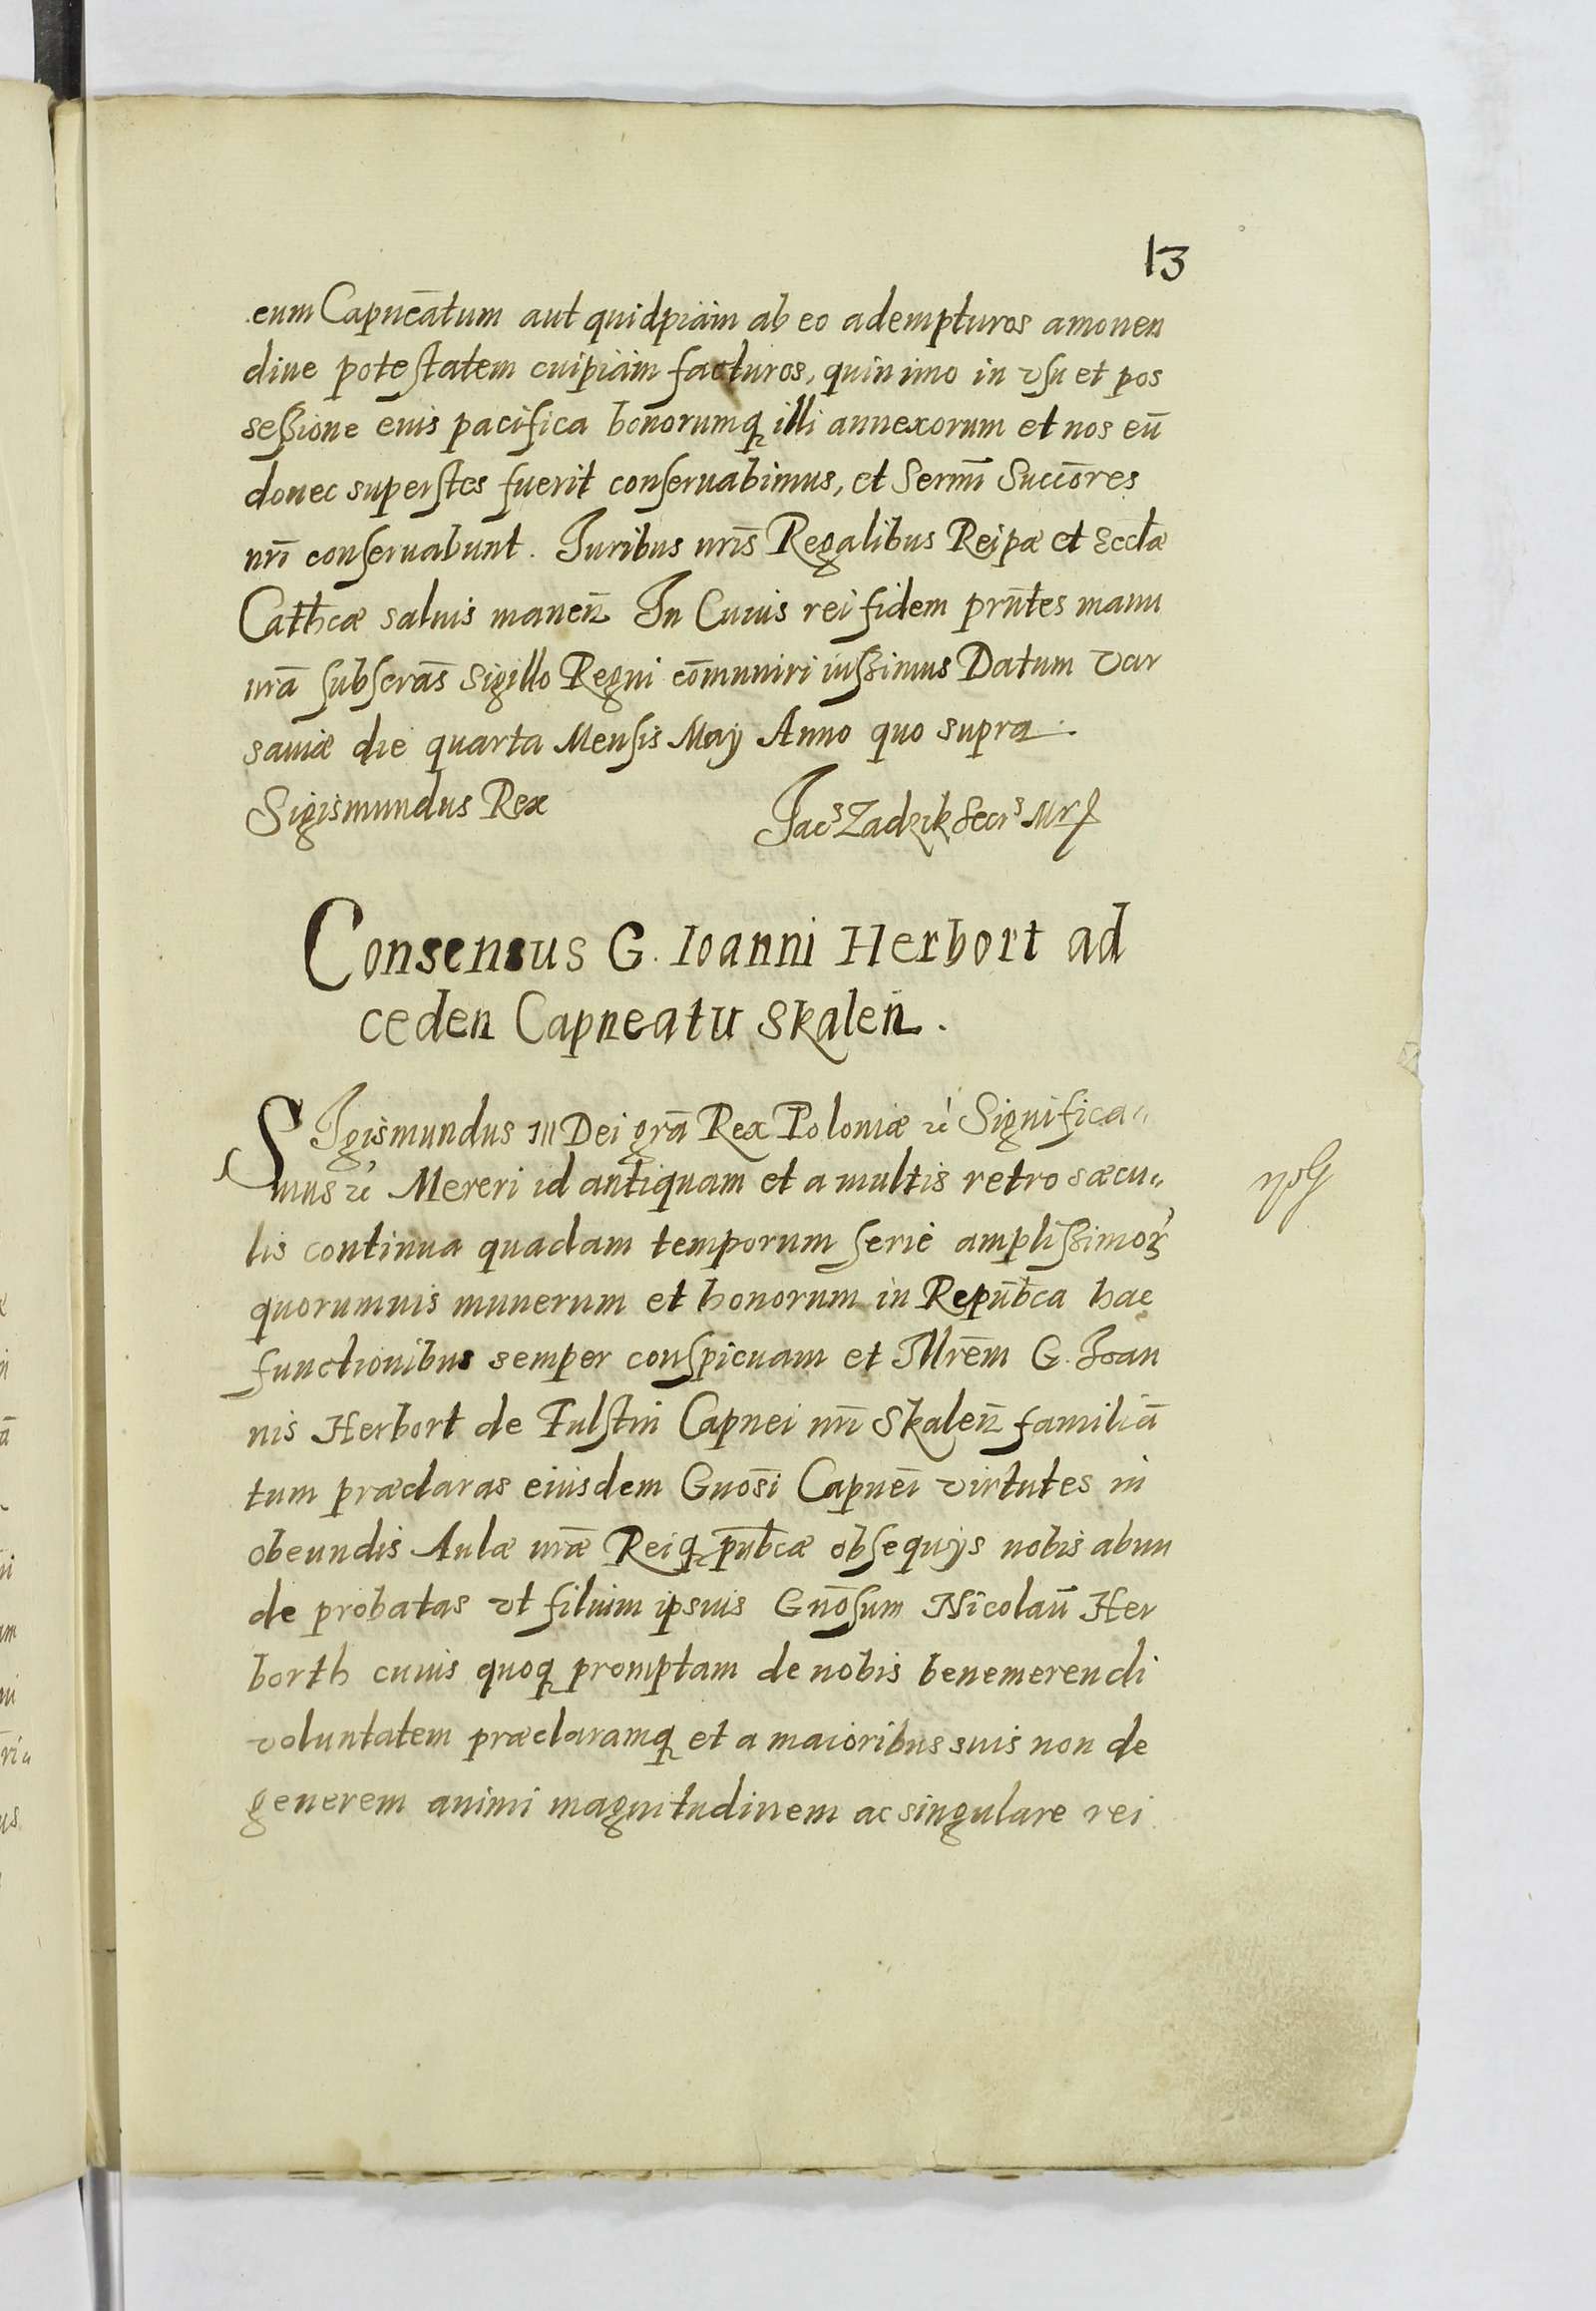 13
eum Capneātum aut quidpiam ab eo adempturos amouen
diue potestatem cuipiam facturos, quin imo in vsu et pos
sessione euis pacifica bonorumq illi annexorum et nos eū
donec superstes fuerit conseruabimus, et Sermī Succōres
nrī conseruabunt. Juribus nrīs Regalibus Reipæ et Eccłæ
Cathcæ saluis maneñ In Cuius rei fidem prn̄tes manu
nrā subscrās sigillo Regni cōmuniri iussimus Datum Var
sauiæ die quarta Mensis Maij Anno quo supra.
Sigismundus Rex
Jacˢ Zadzik Secrˢ Mr
Consensus G. Ioanni Herbort ad
ceden Capneatu Skaleñ.
SIgismundus III Dei grā Rex Poloniæ &c Significa〃
mus &c Mereri id antiquam et a multis retro sæcu〃
lis continua quadam temporum serie amplissimoꝝ
quorumuis munerum et honorum in Repūbca hac
functionibus semper conspicuam et Illrēm G. Joan
nis Herbort de Fulstin Capnei nrī Skaleñ familiā
tum præclaras eiusdem Gnōsi Capneī virtutes in
obeundis Aulæ nræ Reiq pūbcæ obsequijs nobis abun
de probatas vt filium ipsius Gnōsum Nicolaū Her
borth cuius quoq promptam de nobis benemerendi
voluntatem præclaramq et a maioribus suis non de
generem animi magnitudinem ac singulare rei